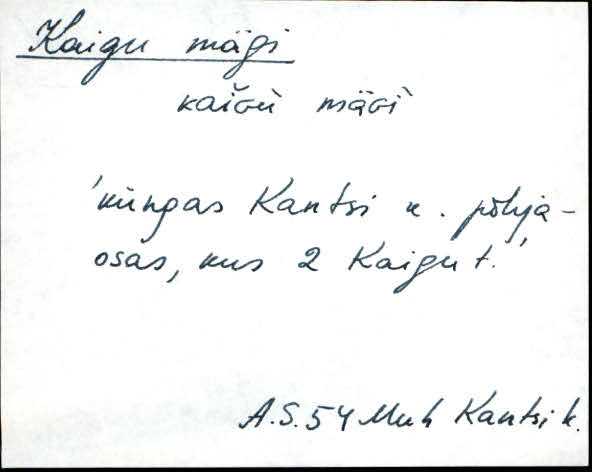 Kaigu mägi
kaiɢù mäɢì
'küngas Kantsi k. põhja-
osas, kus 2 Kaigu t.'
A.S. 54 Muh Kantsi k.